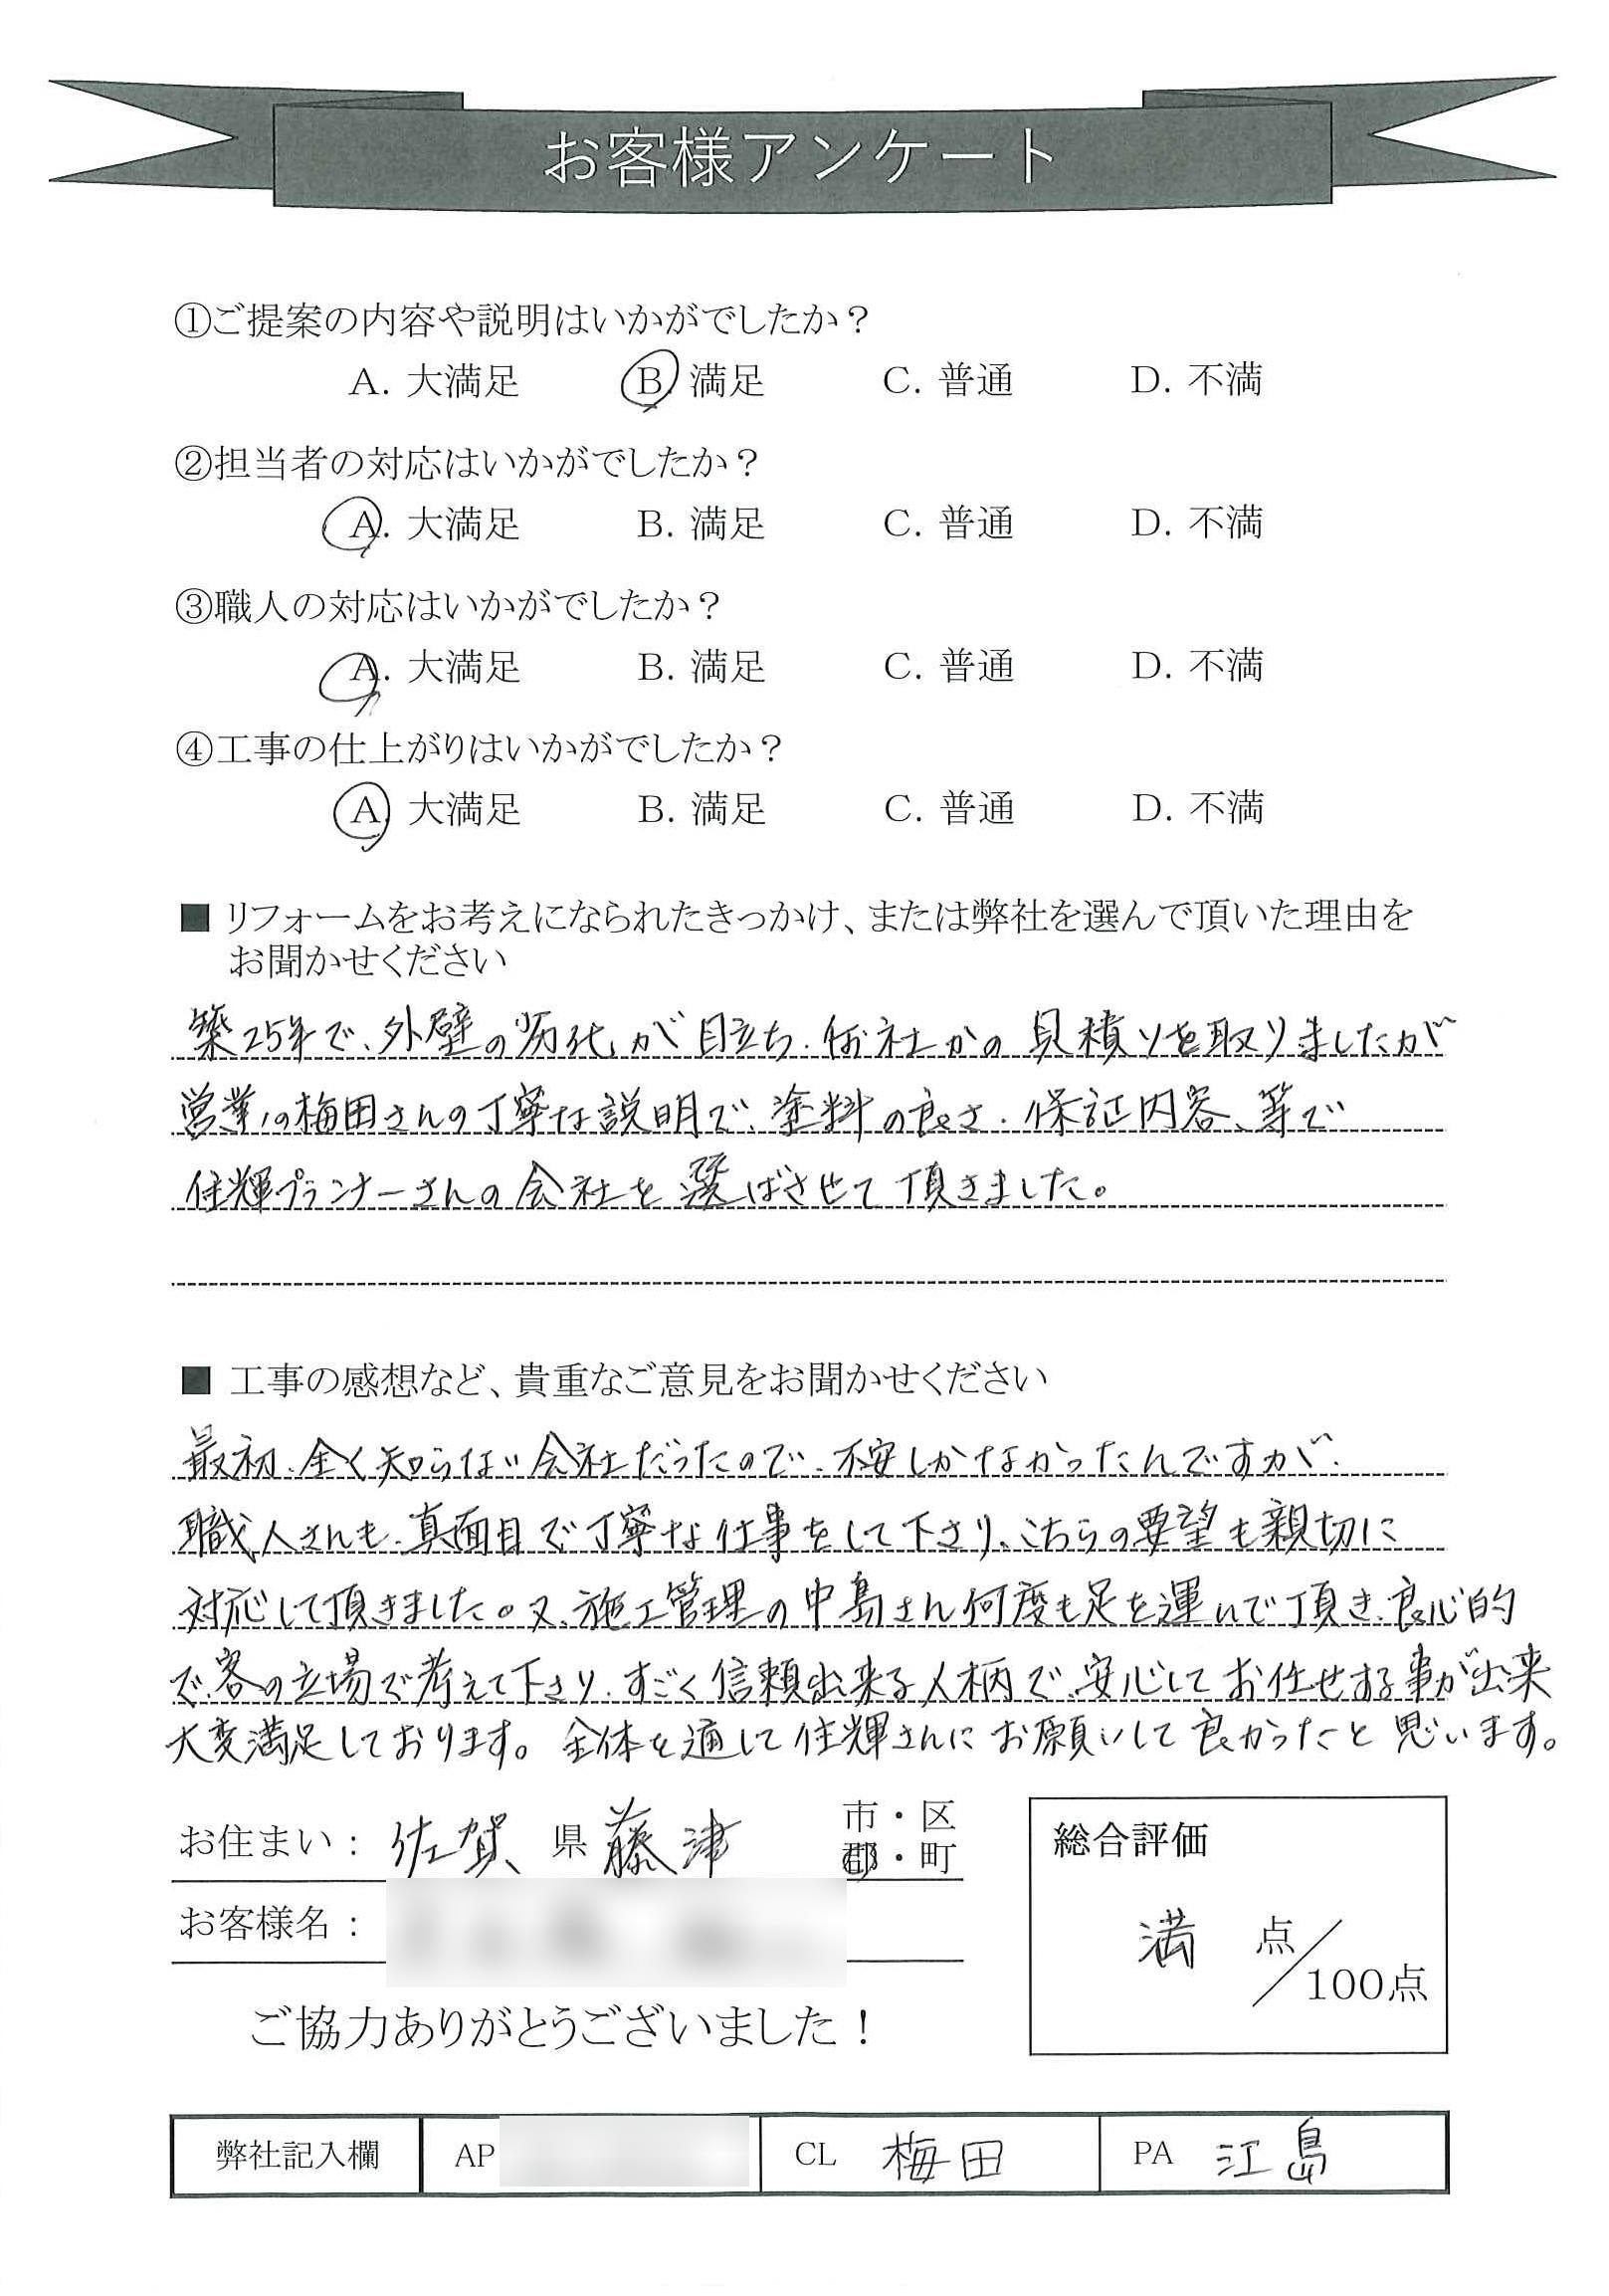 お客様アンケート
①ご提案の内容や説明はいかがでしたか？
A. 大満足 B. 満足 C. 普通 D. 不満
②担当者の対応はいかがでしたか？
A. 大満足 B. 満足 C. 普通 D. 不満
③職人の対応はいかがでしたか？
A. 大満足 B. 満足 C. 普通 D. 不満
④工事の仕上がりはいかがでしたか？
A. 大満足 B. 満足 C. 普通 D. 不満
■ リフォームをお考えになられたきっかけ、または弊社を選んで頂いた理由を
お聞かせください
築25年で、外壁の劣化が目立ち、何社かの見積りを取りましたが
営業の梅田さんの丁寧な説明で、塗料の良さ、保証内容、等で
住輝プランナーさんの会社を選ばさせて頂きました。
■ 工事の感想など、貴重なご意見をお聞かせください
最初、全く知らない会社だったので、不安しかなかったんですが、
職人さんも、真面目で丁寧な仕事をして下さり、こちらの要望も親切に
対応して頂きました。又、施工管理の中島さん何度も足を運んで頂き、良心的
で、客の立場で考えて下さり、すごく信頼出来る人柄で、安心してお任せする事が出来
大変満足しております。全体を通して住輝さんにお願いして良かったと思います。
お住まい： 佐賀 県 藤津 市・区
郡・町
お客様名：
総合評価
満 点／100点
ご協力ありがとうございました！
弊社記入欄 AP CL 梅田 PA 江島